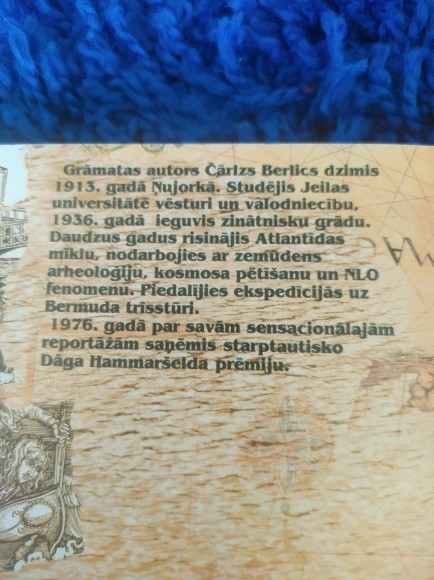 Grāmatas autors Čārlzs Berlics dzimis
1913. gadā Ņujorkā. Studējis Jeilas
universitātē vēsturi un valodniecību,
1936. gadā ieguvis zinātnisku grādu.
Daudzus gadus risinājis Atlantīdas
mīklu, nodarbojies ar zemūdens
arheoloģiju, kosmosa pētīšanu un NLO
fenomenu. Piedalījies ekspedīcijās uz
Bermuda trīsstūri.
1976. gadā par savām sensacionālajām
reportāžām saņēmis starptautisko
Dāga Hammaršelda prēmiju.